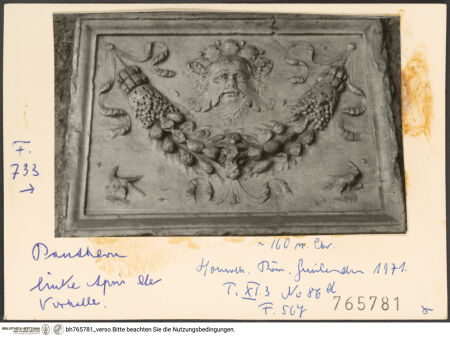 F.
733
→
Pantheon
linke Apsis der
Vorhalle.
~ 160 n. Chr.
Honroth, Röm. Girlanden 1971.
T. XI.3 No 86 d
F. 567
765781
BIBLIOTHECA HERTZIANA bh765781_verso Bitte beachten Sie die Nutzungsbedingungen.